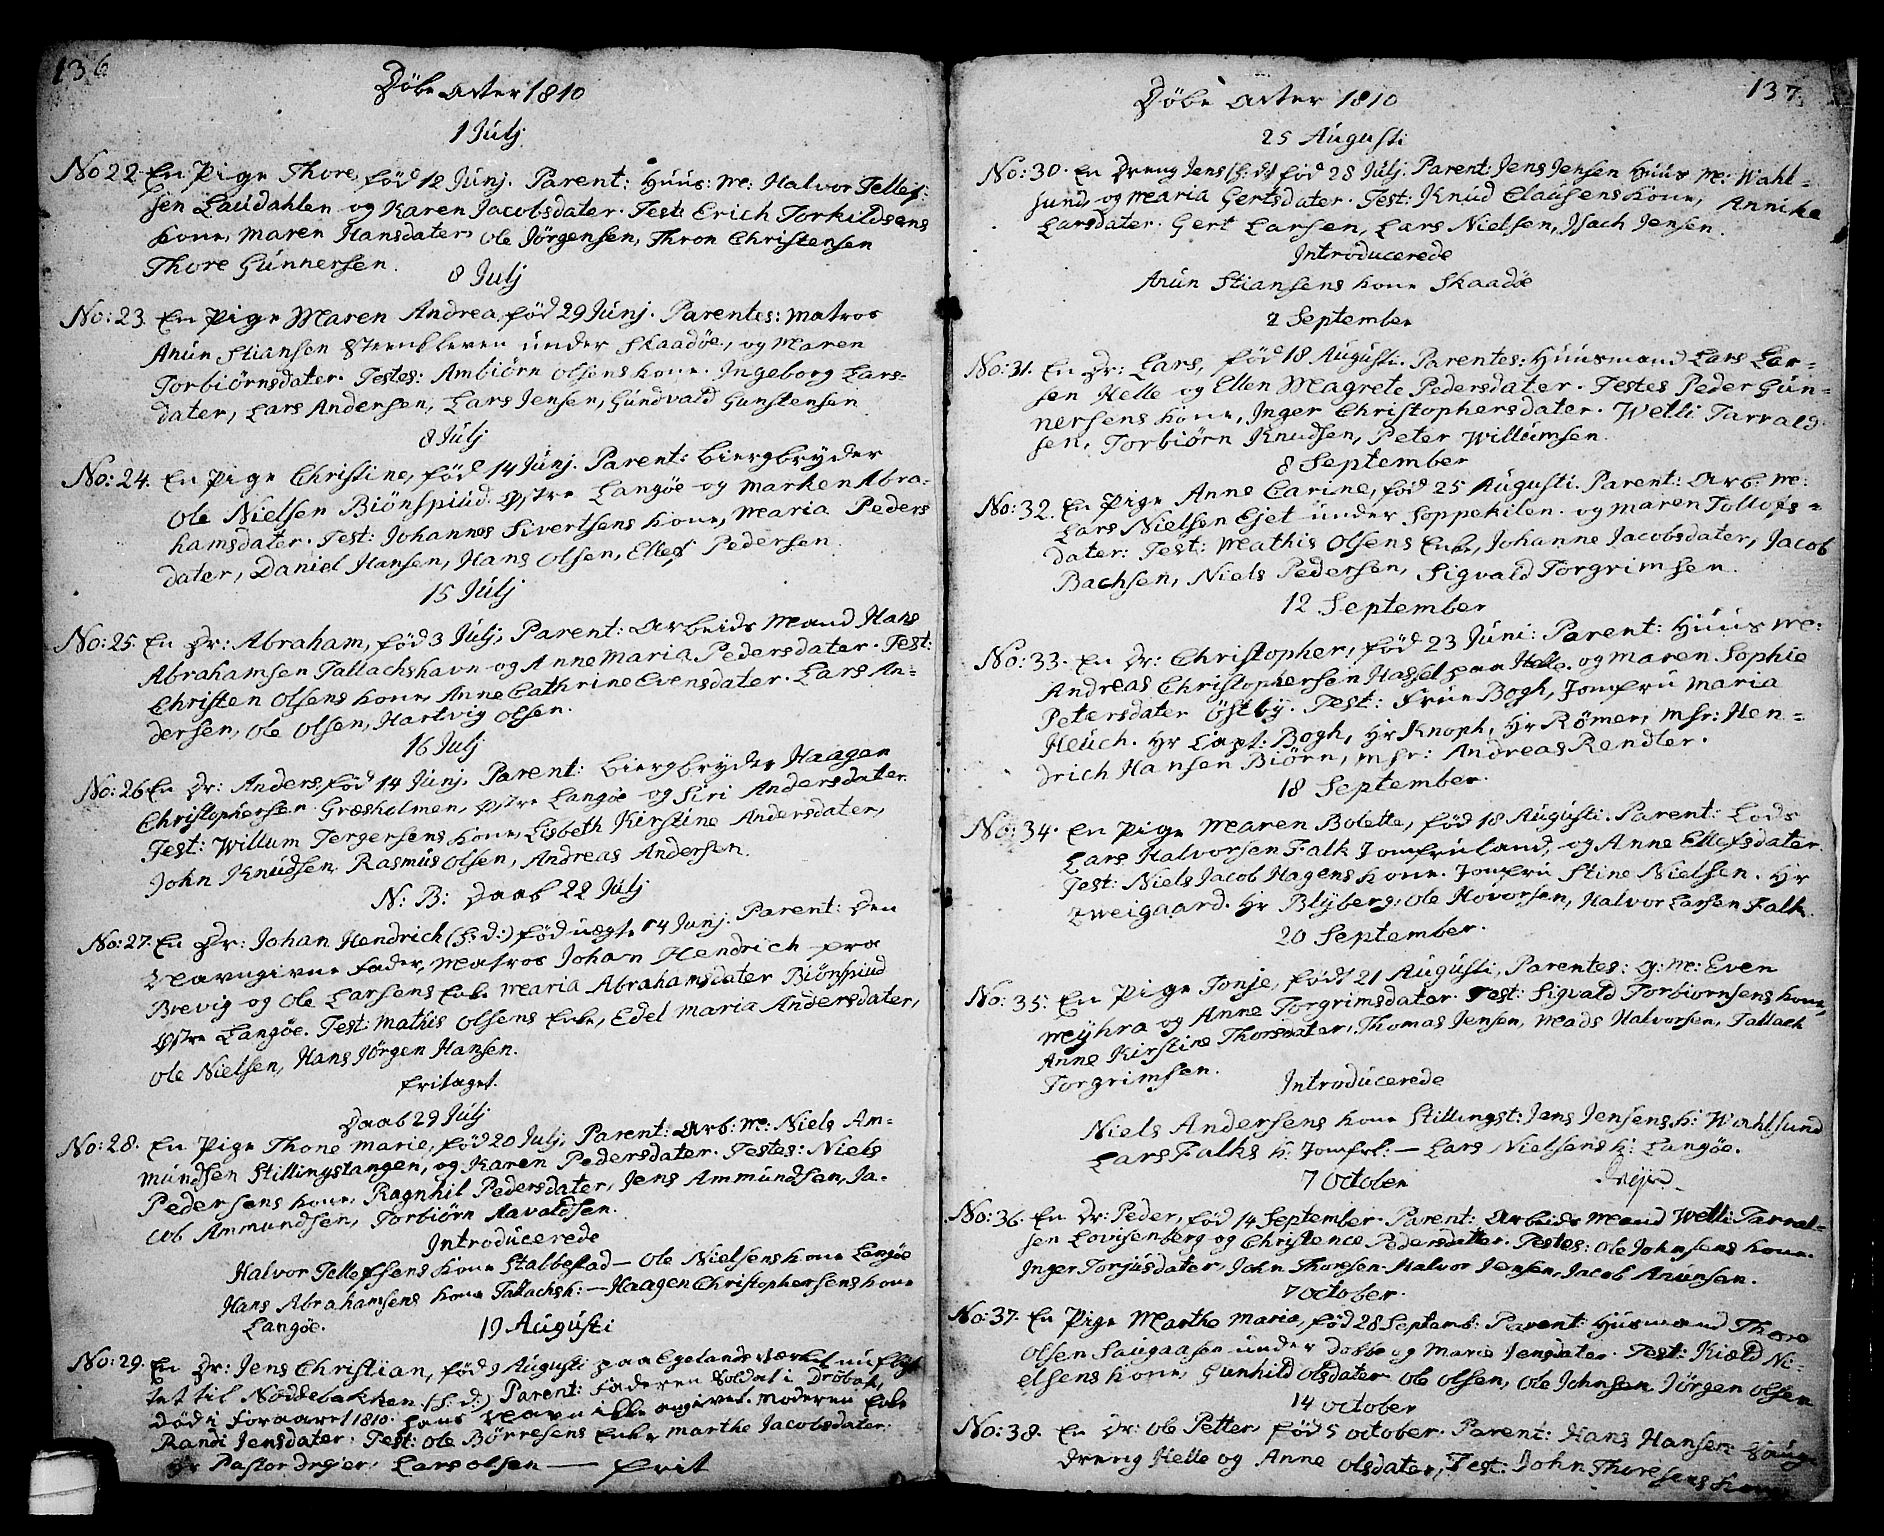 136
Døbe Acter 1810
1 Julj
No 22 En Pige Thore, fød 12 Junj. Parent: Huus: M: Halvor Tellef-
sen Laudahlen og Karen Jacobsdater. Test: Erich Torkildsens
Kone, Maren Hansdater, Ole Jörgensen, Thron Christensen
Thore Gunnersen.
8 Julj
No: 23. En Pige Maren Andrea, fød 29 Junj. Parentes: Matros
Anun Stiansen Steenkleven under Skaadøe, og Maren
Torbiörnsdater. Testes: Ambiörn Olsens Kone. Ingeborg Lars-
dater, Lars Andersen, Lars Jensen, Gundvald Gunstensen
8 Julj
No: 24. En Pige Christine, fød 14 Junj. Parent: Biergbryder
Ole Nielsen Biönspiud. Østre Langøe og Marken Abra-
hamsdater. Test: Johannes Sivertsens Kone, Maria Peders
dater, Daniel Hansen, Hans Olsen, Ellef Pedersen.
15 Julj
No: 25. En Dr: Abraham, fød 3 Julj, Parent: Arbeids Mand Hans
Abrahamsen Tallachshavn og Anne Maria Pedersdater. Test:
Christen Olsens Kone, Anne Cathrine Evensdater. Lars An-
dersen, Ole Olsen, Hartvig Olsen.
16 Julj
No: 26 En Dr: Anders, fød 14 Junj. Parent: Biergbryder Haagen
Christophersen Græsholmen, Østre Langøe og Siri Andersdater
Test: Willum Tergersens Kone, Lisbeth Kirstine Andersdater,
John Knudsen, Rasmus Olsen, Andreas Andersen.
N: B: Daab 22 Julj
No: 27. En Dr: Johan Hendrich (h: d:) fød uægte 14 Junj. Parent: Den
Navngivne Fader, Matros Johan Hendrich fra
Brevig og Ole Larsens Enke Maria Abrahamsdater Biönspiud
Østre Langøe. Test: Mathis Olsens Enke, Edel Maria Andersdater,
Ole Nielsen, Hans Jörgen Hansen.
Fritaget.
Daab 29 Julj
No: 28. En Pige Thone Marie, fød 20 Julj, Parent: Arb: M: Niels Am-
mundsen Stillingstangen, og Karen Pedersdater. Testes: Niels
Pedersens Kone, Ragnhil Pedersdater, Jens Ammundsen, Ja-
cob Ammundsen, Torbiörn Aavaldsen.
Introducerede
Halvor Tellefsens Kone Stalbestad — Ole Nielsens Kone Langöe
Hans Abrahamsens Kone Tallachsh: — Haagen Christophersens Kone
Langøe.
19 Augusti
No: 29. En Dr: Jens Christian, fød 9 Augusti paa Egelands Værket nu flyt
tet til Noddebakken (h: d:) Parent: Faderen Soldat i Drøbak,
død i Foraaret 1810. hans Navn ikke angivet. Moderen Enke
Randi Jensdater. Test: Ole Börresens Enke Marthe Jacobsdater.
Hr Pastor Drejer, Lars Olsen — Frit
137
Døbe Acter 1810
25 Augusti
No: 30. En Dreng Jens (h: d:) fød 28 Julj. Parent: Jens Jensen Huus M: Wahl-
sund og Maria Gertsdater. Test: Knud Clausens Kone, Annike
Larsdater. Gert Larsen, Lars Nielsen, Isach Jensen.
Introducerede
Anun Stiansens Kone Skaadøe
2 September
No: 31. En Dr: Lars, fød 18 Augusti. Parentes: Huusmand Lars Lar-
sen Helle og Ellen Magrete Pedersdater. Testes Peder Gun-
nersens Kone, Inger Christophersdater. Wetli Tarrald
sen, Torbiörn Knudsen, Peter Willumsen.
8 September
No: 32. En Pige Anne Carine, fød 25 Augusti. Parent: Arb: M:
Lars Nielsen Ejet under Soppekilen. og Maren Tollofs-
dater: Test: Mathis Olsens Enke, Johanne Jacobsdater, Jacob
Bachsen, Niels Pedersen, Sigvald Torgrimsen.
12 September
No: 33. En Dr: Christopher, fød 23 Juni: Parent: Huus M:
Andreas Christophersen Hassel paa Helle. og Maren Sophie
Petersdater Östby. Test: Frue Bogh, Jomfru Maria
Heuch. Hr Capt: Bogh, Hr Knoph, Hr Römer, Msr: Hen-
drich Hansen Biörn, Msr: Andreas Rendler.
18 September.
No: 34. En Pige Maren Bolette, fød 18 Augusti. Parent: Lods
Lars Halvorsen Falk Jomfruland, og Anne Ellefsdater.
Test: Niels Jacob Hagens Kone. Jomfru Stine Nielsen. Hr
Zweigaard. Hr Blijberg, Ole Hovorsen, Halvor Larsen Falk.
20 September.
No: 35: En Pige Tonje, født 21 Augusti, Parentes: G: M: Even
Mejhra og Anne Torgrimsdater. Test: Sigvald Torbiornsens Kone,
Anne Kirstine Thorsdater, Thomas Jensen, Mads Halvorsen, Tallack
Torgrimsen.
Introducerede
Niels Andersens Kone Stillingst: Jens Jensens K: Wahlsund
Lars Falks K: Jomfrl: — Lars Nielsens K: Langøe.
7 October
Drejer
No: 36. En Dr: Peder, fød 14 September. Parent: Arbeids Mand Wetli Tarral-
sen Lovisenberg og Christence Pedersdatter. Testes: Ole Johnsens Kone.
Inger Torjusdater, John Thoresen. Halvor Jensen, Jacob Anunsen.
7 October.
No: 37. En Pige Marthe Maria, fød 28 Septemb: Parent: Husmand Thore
Olsen Saugaasen under Dobbe og Marie Jensdater. Test: Kiæld Ni-
elsens Kone, Gunhild Olsdater Ole Olsen, Ole Johnsen, Jörgen Olsen
14 October
No: 38. En Dr: Ole Petter, fød 5 October. Parent: Hans Hansen Saug-
dreng Helle og Anne Olsdater, Test. John Thoresens Kone